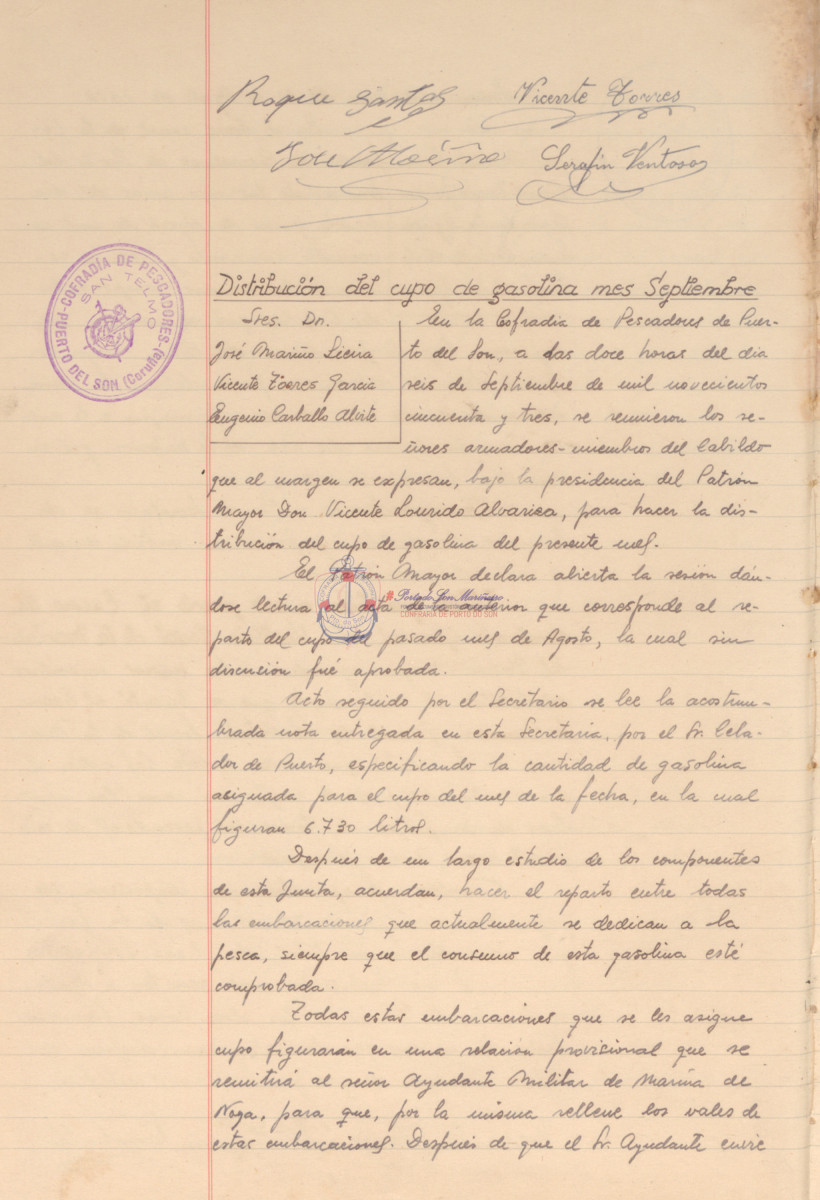 Roque Santos Vicente Torres
José Mariño Serafín Ventoso
COFRADÍA DE PESCADORES
SAN TELMO
PUERTO DEL SON (Coruña)
Distribución del cupo de gasolina mes Septiembre
Sres. Dn.
José Mariño Lieira
Vicente Torres García
Eugenio Carballo Alvite
En la Cofradía de Pescadores de Puer-
to del Son, a las doce horas del día
seis de Septiembre de mil novecientos
cincuenta y tres, se reunieron los se-
ñores armadores-miembros del Cabildo
que al margen se expresan, bajo la presidencia del Patrón
Mayor Don Vicente Lourido Alvariza, para hacer la dis-
tribución del cupo de gasolina del presente mes.
El Patrón Mayor declara abierta la sesión dán-
dose lectura al acta de la anterior que corresponde al re-
parto del cupo del pasado mes de Agosto, la cual sin
discusión fué aprobada.
Porto do Son Mariñeiro
CONFRARÍA DE PORTO DO SON
Acto seguido por el Secretario se lee la acostum-
brada nota entregada en esta Secretaría, por el Sr. Cela-
dor de Puerto, especificando la cantidad de gasolina
asignada para el cupo del mes de la fecha, en la cual
figuran 6.730 litros.
Después de un largo estudio de los componentes
de esta Junta, acuerdan, hacer el reparto entre todas
las embarcaciones que actualmente se dedican a la
pesca, siempre que el consumo de esta gasolina esté
comprobada.
Todas estas embarcaciones que se les asigne
cupo figurarán en una relación provisional que se
remitirá al señor Ayudante Militar de Marina de
Noya, para que, por la misma rellene los vales de
estas embarcaciones. Después de que el Sr. Ayudante envie